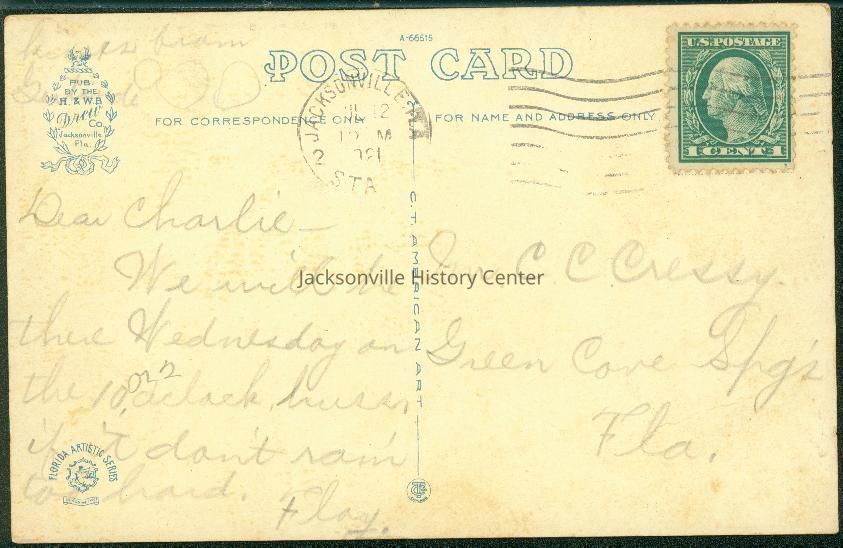 A-66515
POST CARD
PUB.
BY THE
H. & W. B.
Drew
Co.
Jacksonville
Fla.
FOR CORRESPONDENCE ONLY
FOR NAME AND ADDRESS ONLY
JACKSONVILLE, FLA
12
M
STA
U.S. POSTAGE
1 CENT 1
from
Dear Charlie—
We will be
there Wednesday on
the 10 o'clock buss
if it don't rain
to hard.
Floy.
C. C. Cressy.
Green Cove Spg's
Fla.
C.T. AMERICAN ART
Jacksonville History Center
FLORIDA ARTISTIC SERIES